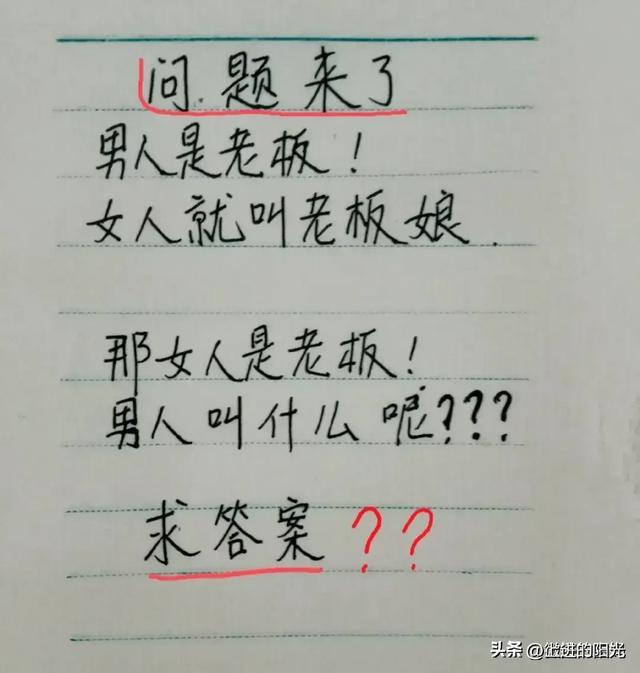 问.题来了
男人是老板！
女人就叫老板娘.
那女人是老板！
男人叫什么呢？？？
求答案？？
头条 @微进的阳光